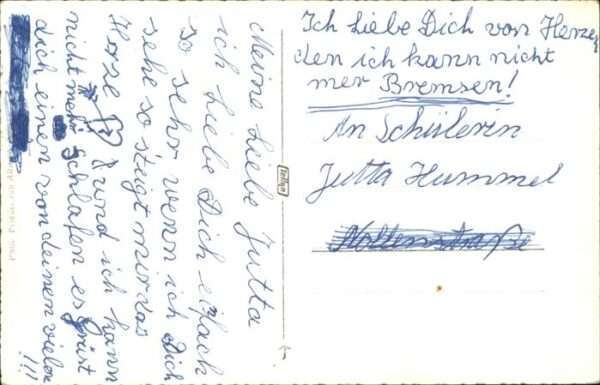 Meine Liebe Jutta
ich Liebe Dich eifach
so sehr wenn ich Dich
sehe so steigt mir das
Herze und ich kann
nicht mehr schlafen es Grüst
dich einen von deinen vielen
!!!
Ich Liebe Dich von Herzen
den ich kann nicht
mer Bremsen!
An Schülerin
Jutta Hummel